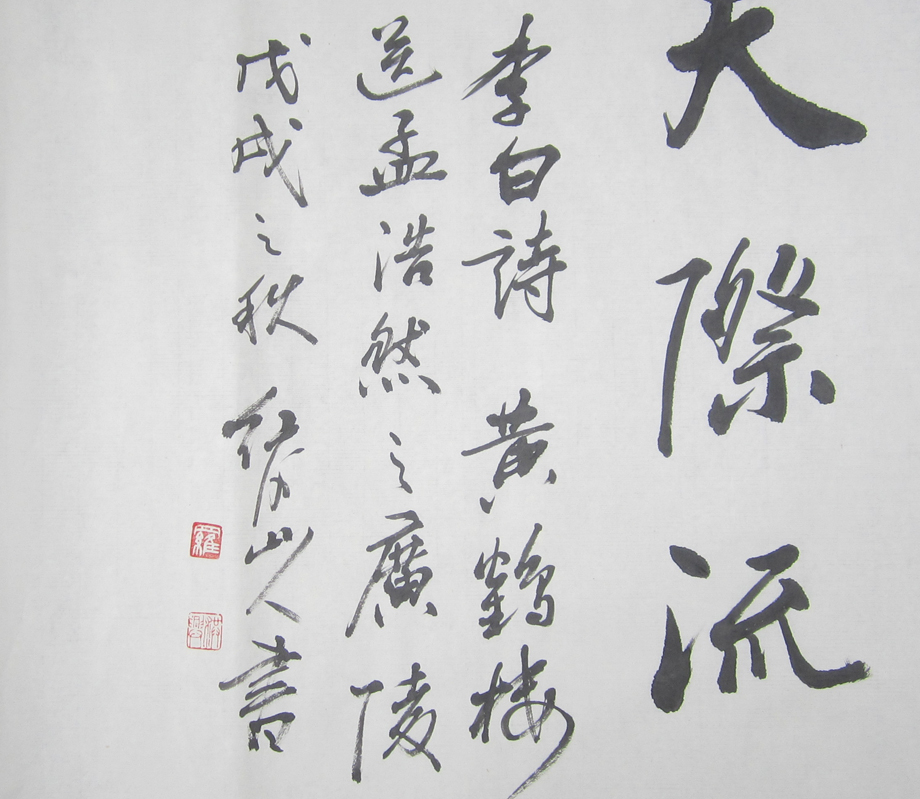 天際流
李白詩 黄鶴楼
送孟浩然之廣陵
戊戌之秋 山人書
羅